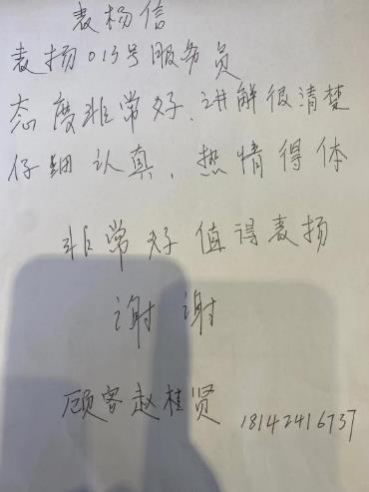 表杨信
表扬013号服务员
态度非常好.讲解很清楚
仔细认真，热情得体
非常好值得表扬
谢谢
顾客赵桂贤 18142416737